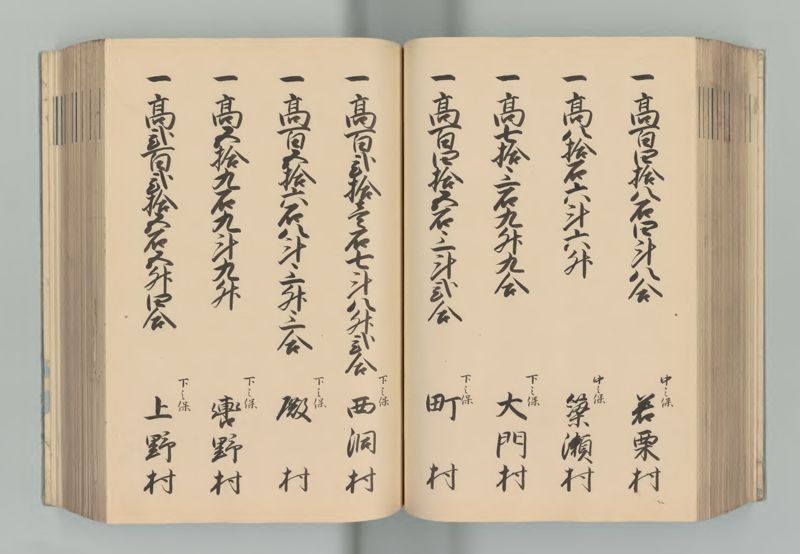 一高百四拾八石四斗八合
中之保
若栗村
一高八拾石六斗六升
中之保
簗瀬村
一高七拾三石九升九合
下之保
大門村
一高百四拾五石三斗弐合
下之保
町村
一高百弐拾壱石七斗八升弐合
下之保
西洞村
一高百五拾六石八斗三升三合
下之保
殿村
一高五拾九石九斗九升
下之保
轡野村
一高弐百弐拾五石五升四合
下之保
上野村